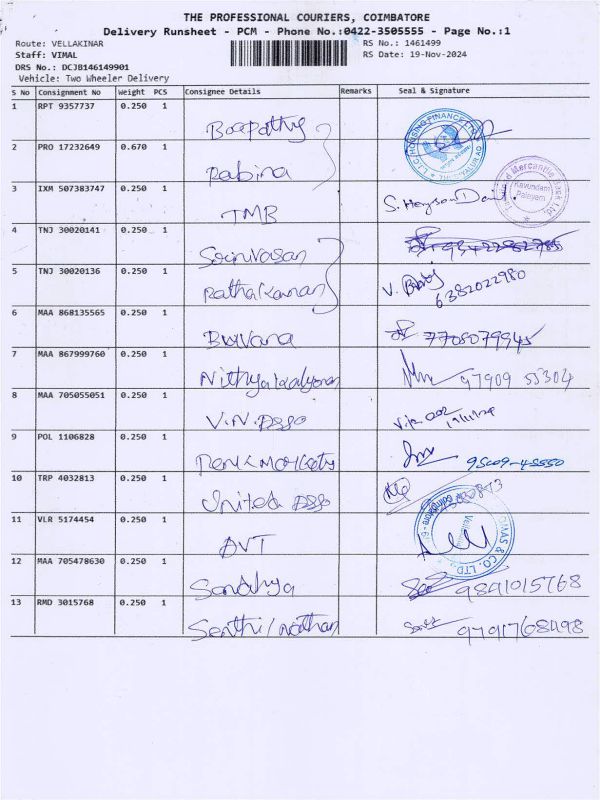 THE PROFESSIONAL COURIERS, COIMBATORE
Delivery Runsheet - PCM - Phone No.:0422-3505555 - Page No.:1
Route: VELLAKINAR
RS No.: 1461499
Staff: VIMAL
RS Date: 19-Nov-2024
DRS No.: DCJB146149901
Vehicle: Two Wheeler Delivery
S No Consignment No Weight PCS Consignee Details Remarks Seal & Signature
1 RPT 9357737 0.250 1
2 PRO 17232649 0.670 1 Rabina
3 IXM 507383747 0.250 1 TMB
4 TNJ 30020141 0.250 1 Srinivasan
5 TNJ 30020136 0.250 1 V. 6382022980
6 MAA 868135565 0.250 1 Buvana 7708079945
7 MAA 867999760 0.250 1 Nithyakalyanan 97909 55304
8 MAA 705055051 0.250 1 V.N.
9 POL 1106828 0.250 1
10 TRP 4032813 0.250 1 United
11 VLR 5174454 0.250 1 AVT
12 MAA 705478630 0.250 1 Sandhya 9841015768
13 RMD 3015768 0.250 1 Senthilnathan 9791768498